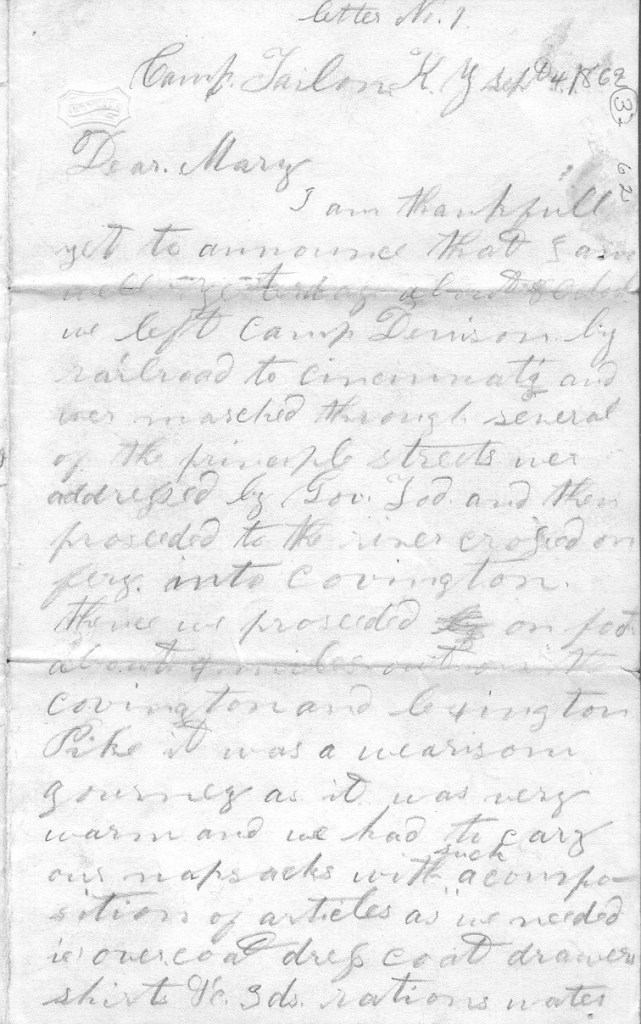 letter No. 1
Camp. Tailor K. Y sept 4. 1862
3
62
Dear. Mary
I am thankfull
yet to announce that I am
well yesterday about
we left Camp Denison by
railroad to cincinnati and
wer marched through several
of the principle streets wer
addressed by Gov. Tod. and then
proseeded to the river crossed on
fery. into Covington.
thence we proseeded on foot
about 4 miles out on the
Covington and lexington
Pike it was a wearisom
gourney as it was very
warm and we had to cary
our napsacks with such a compo-
sition of articles as we needed
ie overcoat dress coat drawers
shirts &c. 3 ds. rations water